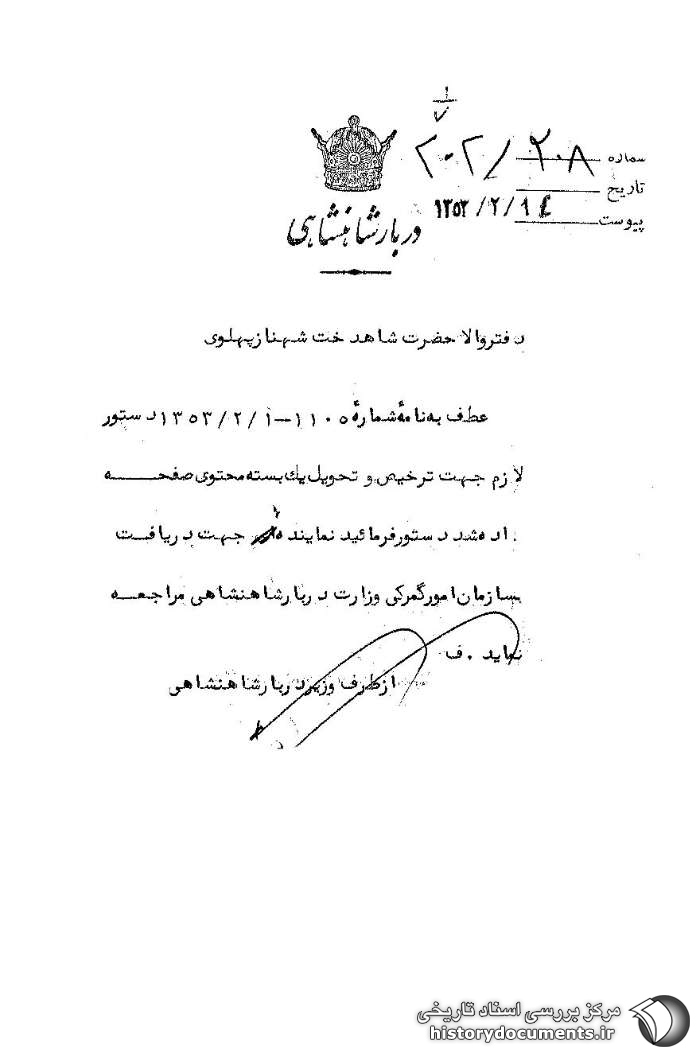 ۱/۷
شماره ۲۰۲/۲۰۸
تاریخ
پیوست ۱۳۵۳/۲/۱٤
دربار شاهنشاهی
دفتر والاحضرت شاهدخت شهناز پهلوی
عطف به نامهٔ شمارهٔ ۱۱۰۵-۱۳۵۳/۲/۱ دستور
لازم جهت ترخیص و تحویل یك بسته محتوی صفحه
داده شد دستور فرمائید نماینده جهت دریافت
بسازمان امور گمرکی وزارت دربار شاهنشاهی مراجعه
نماید . ف
از طرف وزیر دربار شاهنشاهی
مرکز بررسی اسناد تاریخی
historydocuments.ir